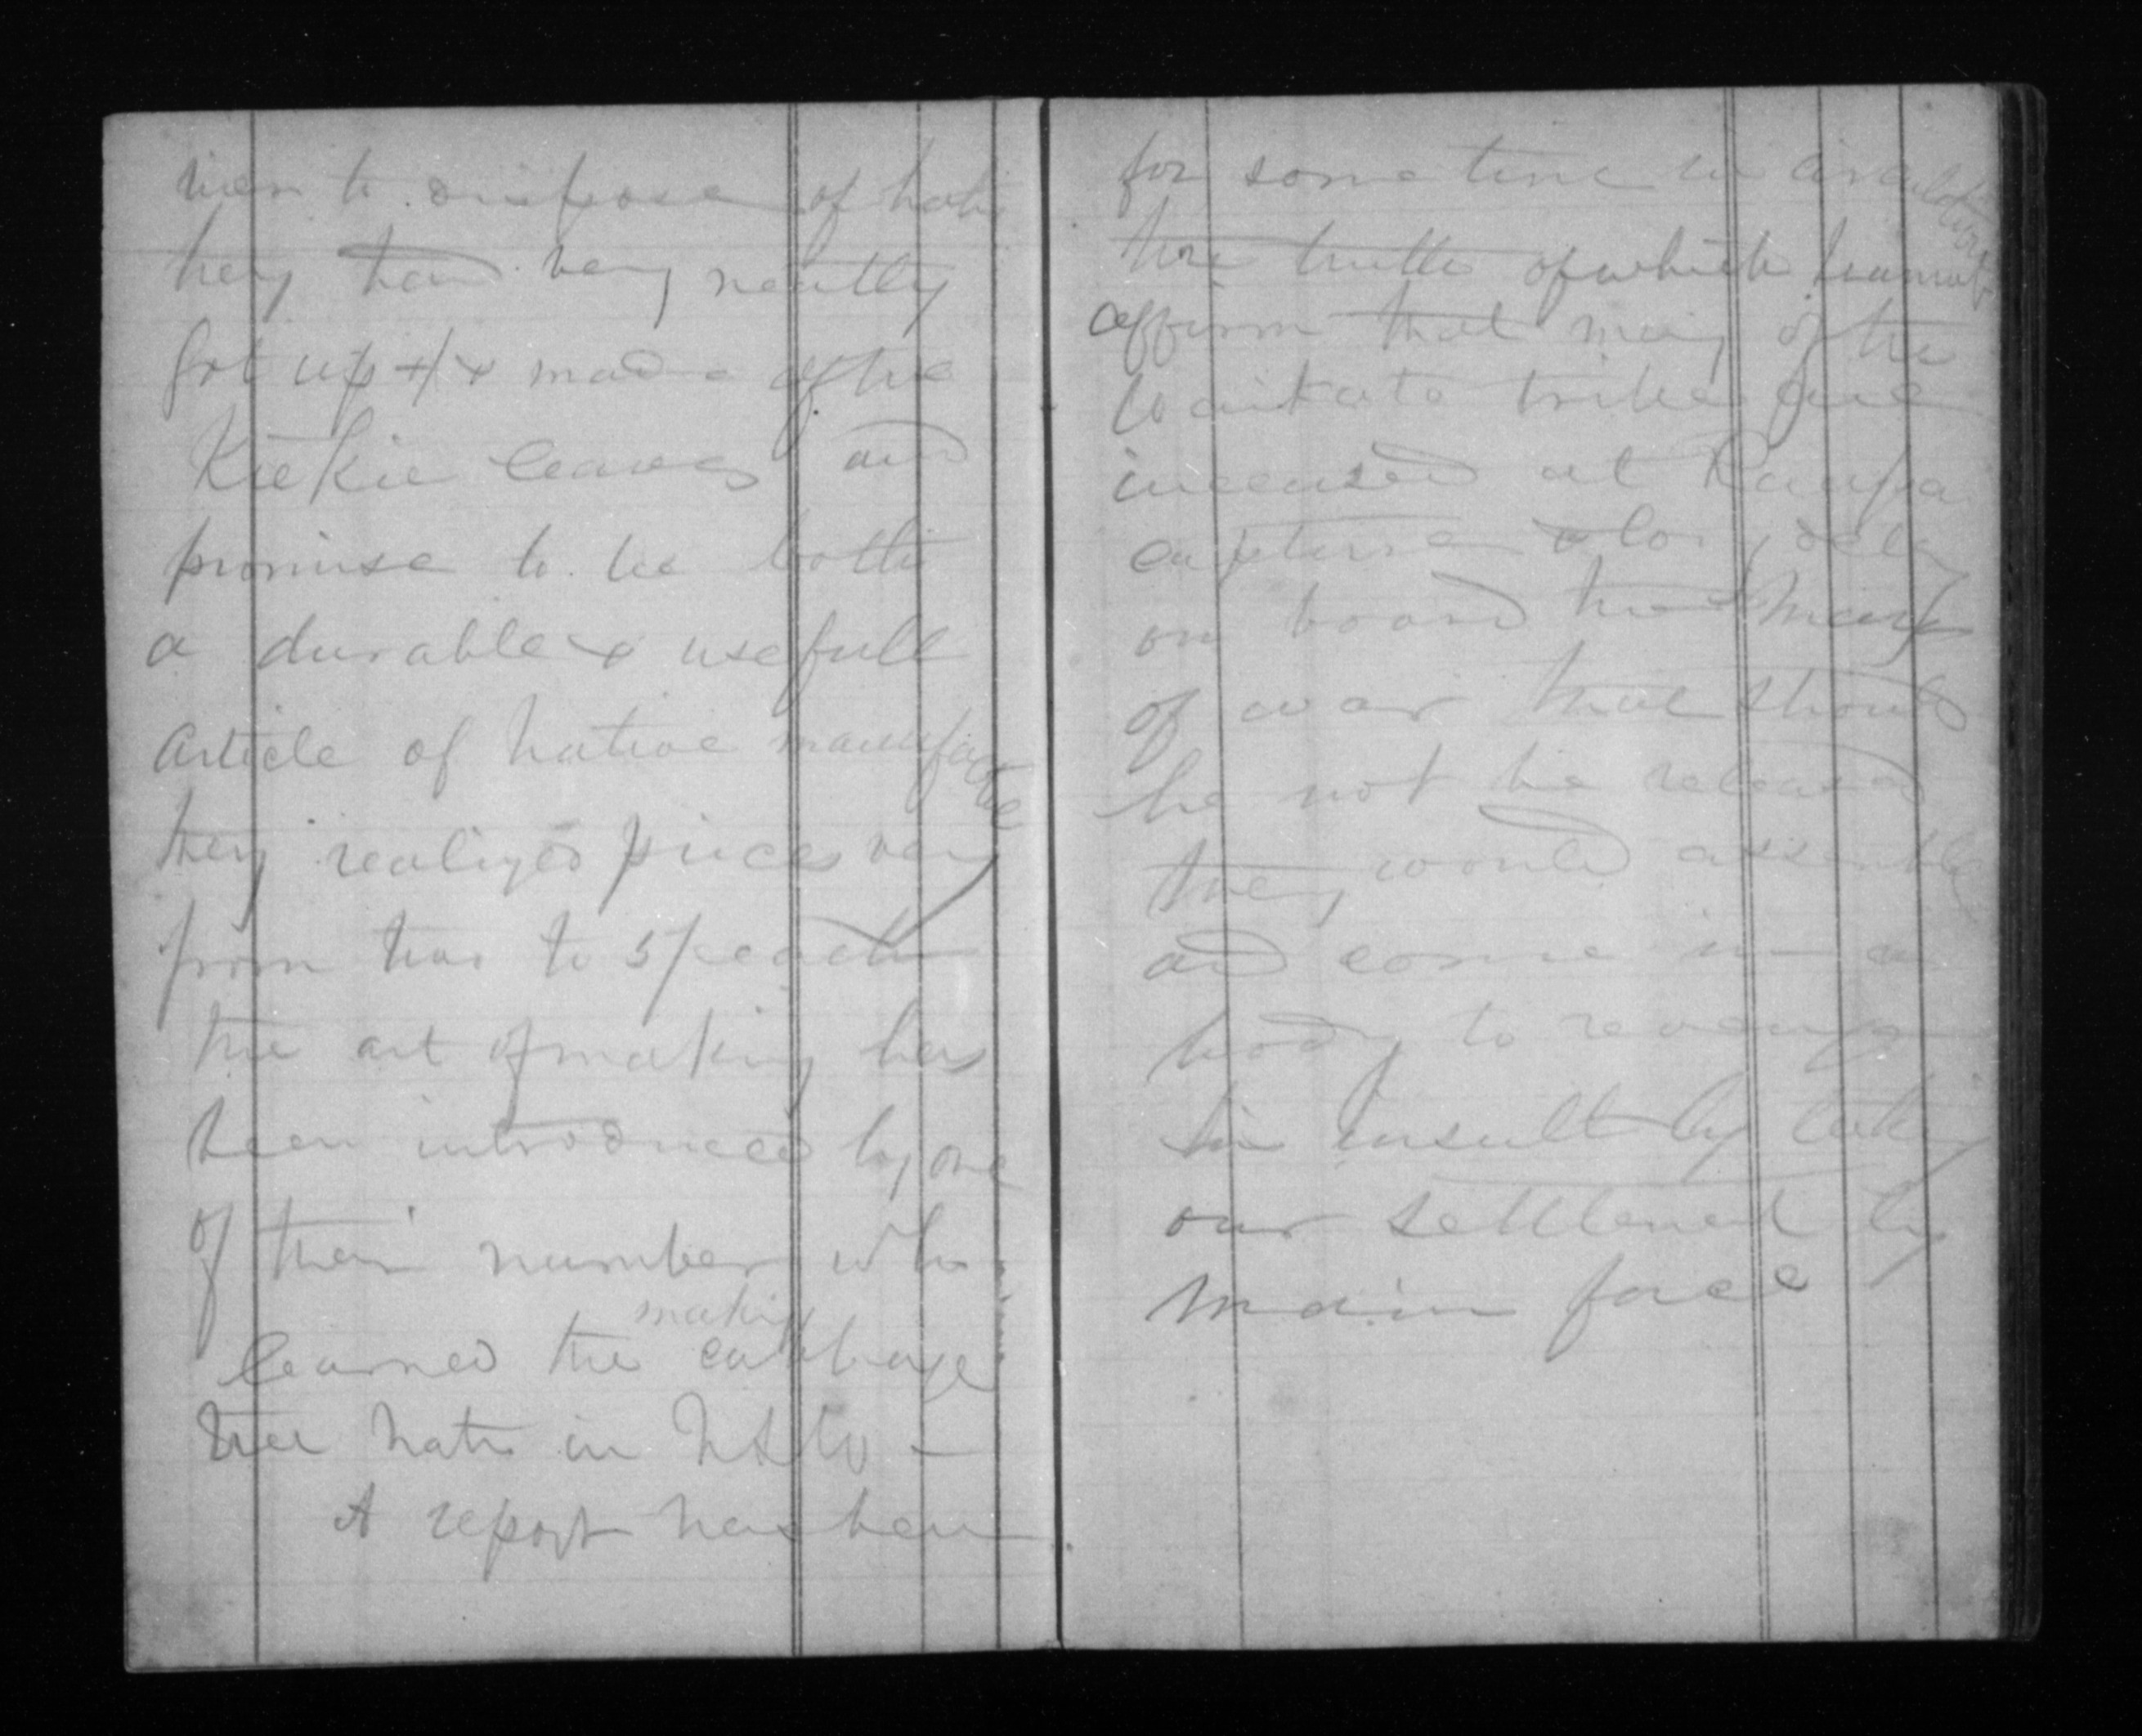 men to dispose of hats
they had very neatly
got up & made of the
Kie Kie leaves and
promise to be both
a durable & usefull
article of native manufacture
they realized prices
from two to 5/ each
the art of making has
been introduced by one
of their number who
learned the making cabbage
tree hats in NSW —
A report has been
for some time in circulation
the truth of which I cannot
affirm that many of the
Waikato tribe are
incensed at
capture
on board the Man
of war that should
he not be released
they would assemble
and come in a
body to revenge
the insult by taking
our settlement by
main force